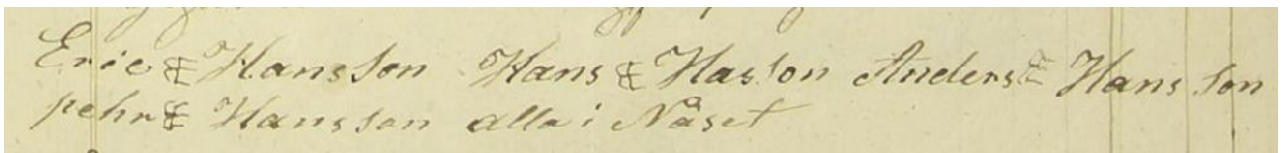 Eric Hansson Hans Hasson Anders Hans son
pehr Hansson alla i Nåset